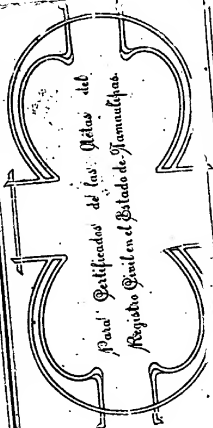 Para Certificados de las Actas del
Registro Civil en el Estado de Tamaulipas.